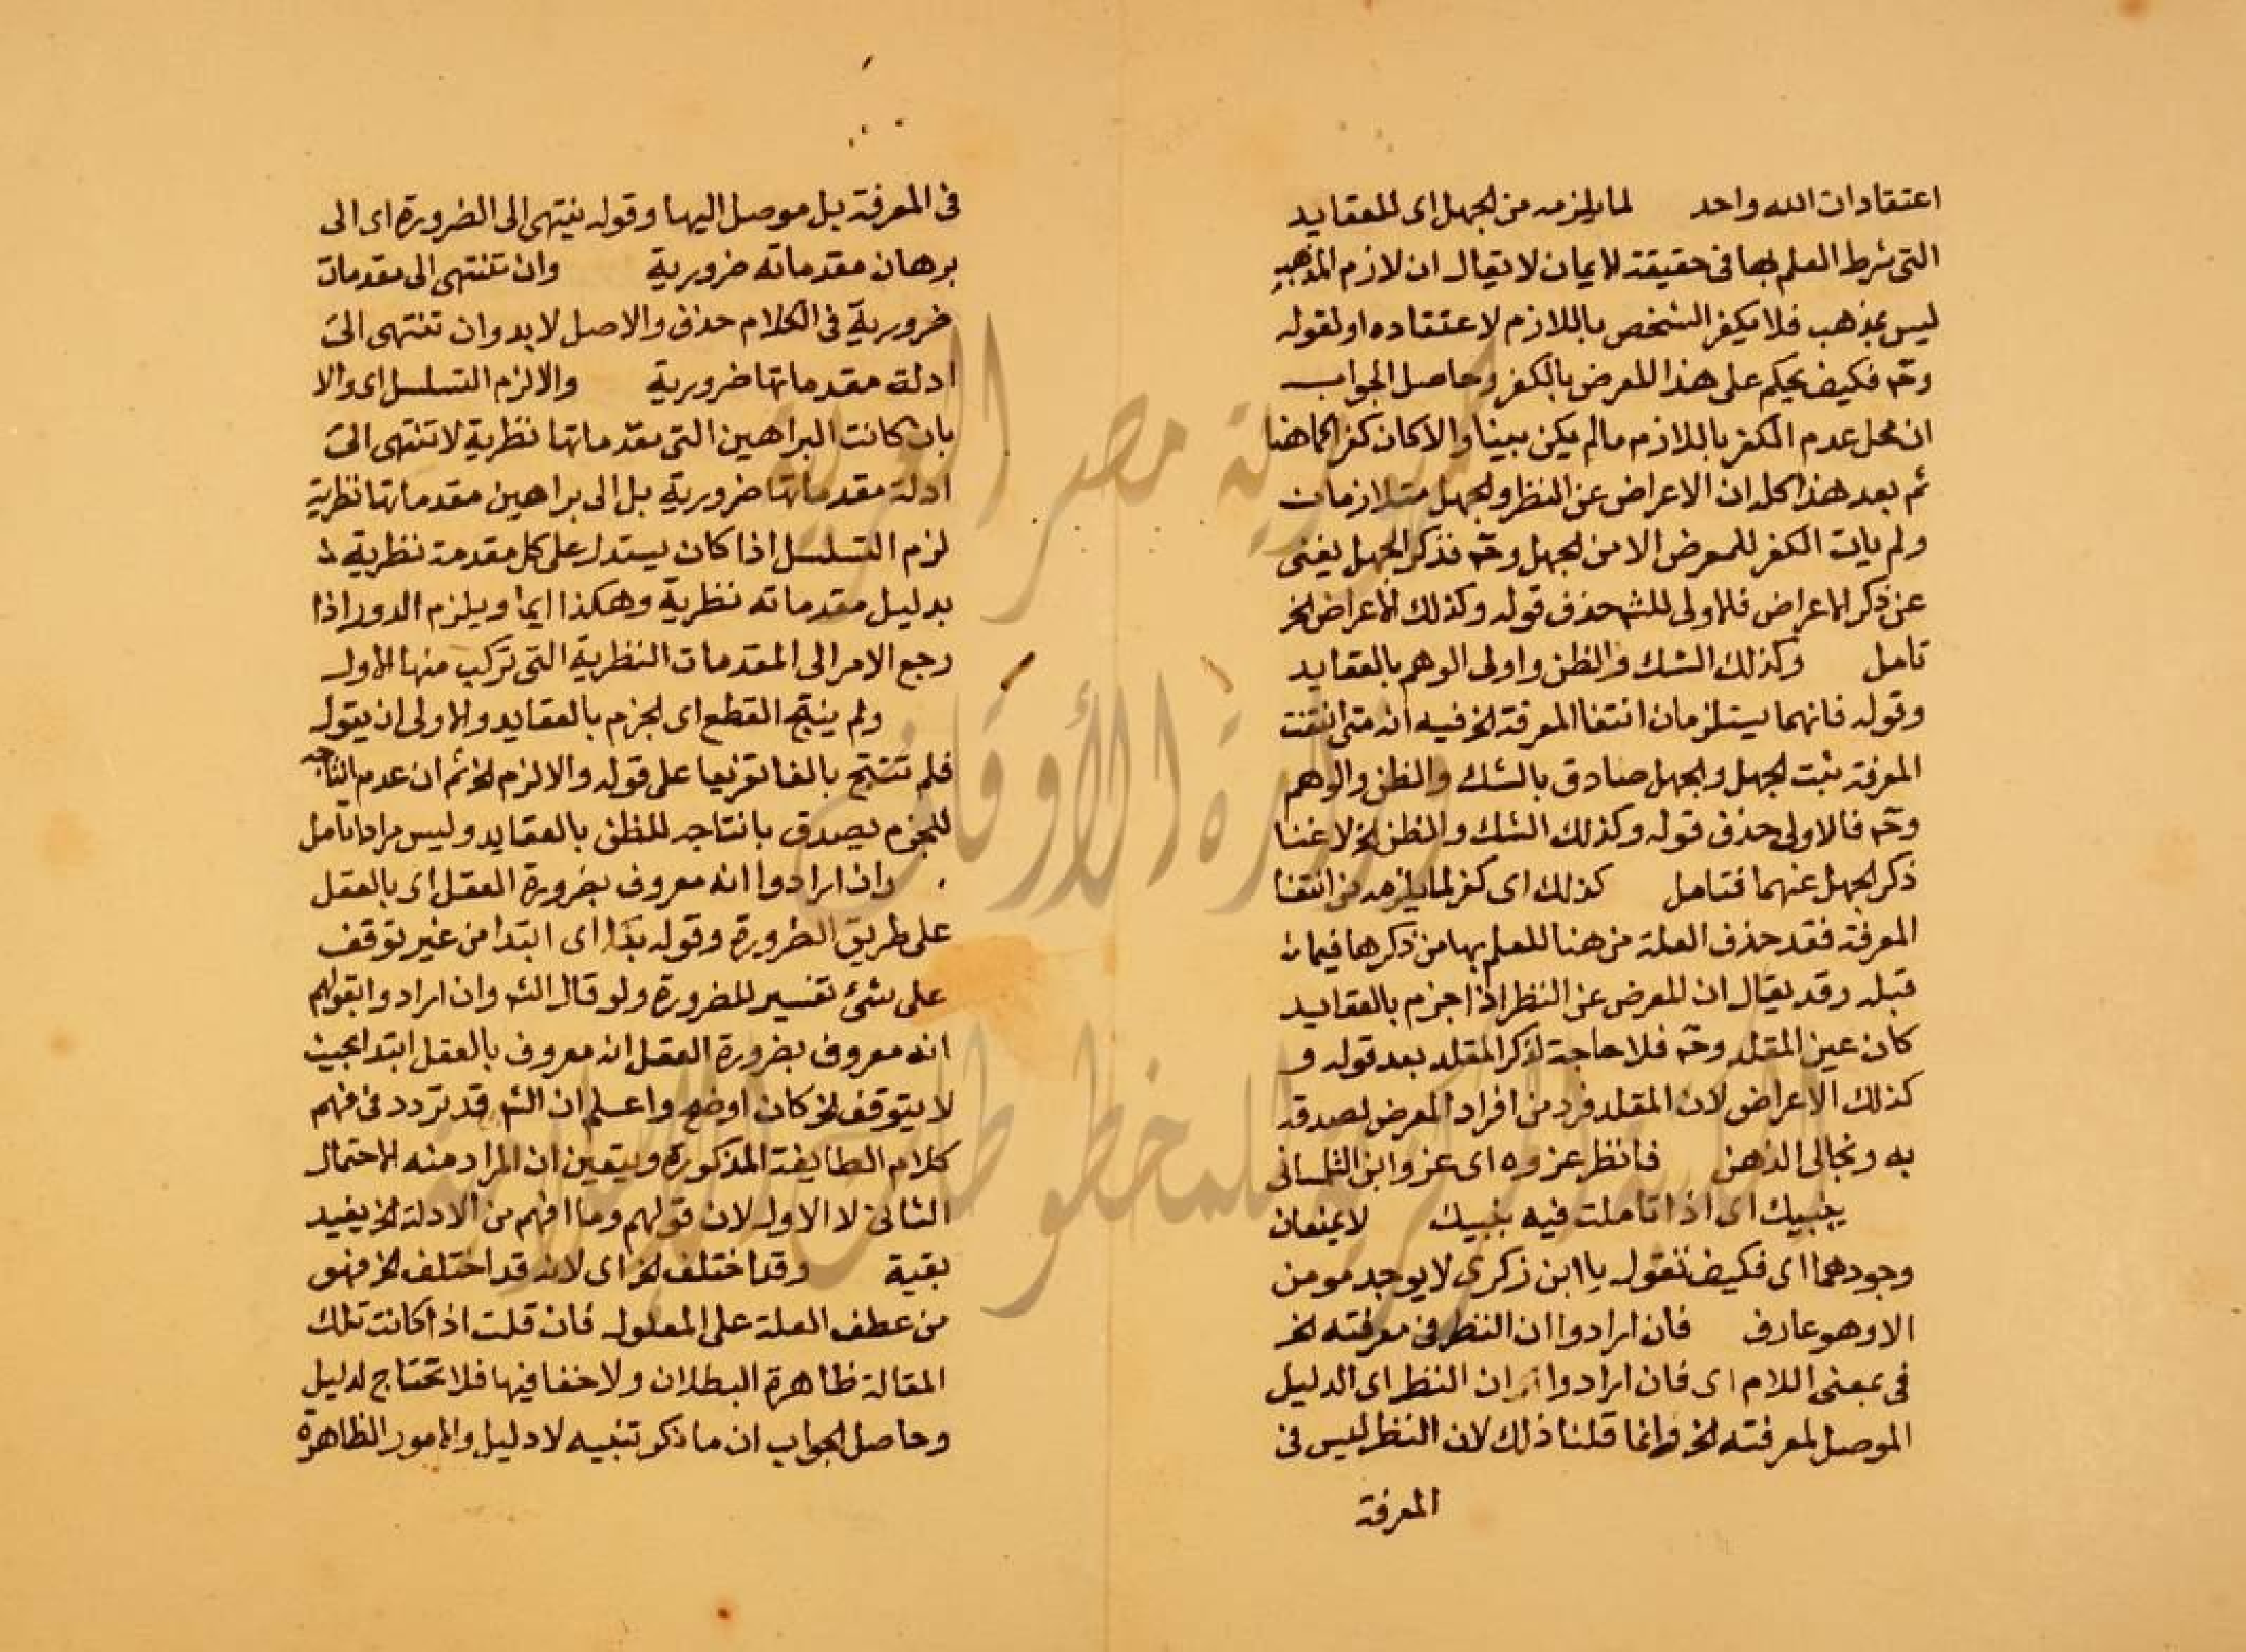 اعتقادات الله واحد لما يلزمه من الجهل اى للعقايد
التى شرط العلم بها فى حقيقة الايمان لا يقال ان لازم المذهب
ليس بمذهب فلا يكفر الشخص باللازم لاعتقاده او لقوله
وحـ فكيف يحكم على هذا المعرض بالكفر وحاصل الجواب
ان محل عدم الكفر باللازم ما لم يكن بينا والا كان كفرا كما هنا
ثم بعد هذا كله ان الاعراض عن النظر والجهل متلازمان
ولم يات الكفر للمعرض الا من الجهل وحـ فذكر الجهل يغنى
عن ذكر الاعراض فالاولى للشـ حذف قوله وكذلك الاعراض الخ
تامل وكذلك الشك والظن واولى الوهم بالعقايد
وقوله فانهما يستلزمان انتفا المعرفة الخ فيه انه متى انتفت
المعرفة ثبت الجهل والجهل صادق بالشك والظن والوهم
وحـ فالاولى حذف قوله وكذلك الشك والظن الخ لاغنا
ذكر الجهل عنهما فتامل كذلك اى كفر لما يلزمه من انتفا
المعرفة فقد حذف العلة من هنا للعلم بها من ذكرها فيما
قبله وقد يقال ان المعرض عن النظر اذا جزم بالعقايد
كان عين المقلد وحـ فلا حاجة لذكر المقلد بعد قوله و
كذلك الاعراض لان المقلد فرد من افراد المعرض لصدقه
به وبخالى الذهن فانظر عزوه اى عزو ابن التلمسانى
ينبيك اى اذا تاملت فيه ينبيك لا يمنعان
وجودهما اى فكيف تقول يا ابن زكرى لا يوجد مومن
الا وهو عارف فان ارادوا ان النظر فى معرفته الخ
فى بمعنى اللام اى فان ارادوا ان النظر اى الدليل
الموصل لمعرفته الخ وانما قلنا ذلك لان النظر ليس فى
المعرفة
فى المعرفة بل موصل اليها وقوله ينتهى الى الضرورة اى الى
برهان مقدماته ضرورية وان تنتهى الى مقدمات
ضرورية فى الكلام حذف والاصل لا بد وان تنتهى الى
ادلة مقدماتها ضرورية والا لزم التسلسل اى والا
بان كانت البراهين التى مقدماتها نظرية لا تنتهى الى
ادلة مقدماتها ضرورية بل الى براهين مقدماتها نظرية
لزم التسلسل اذا كان يستدل على كل مقدمة نظرية
بدليل مقدماته نظرية وهكذا ايما ويلزم الدور اذا
رجع الامر الى المقدمات النظرية التى تركب منها الاول
ولم ينتج القطع اى الجزم بالعقايد والاولى ان يقول
فلم تنتج بالفا تفريعا على قوله والا لزم الخ ثم ان عدم انتاجه
للجزم يصدق بانتاجه للظن بالعقايد وليس مرادا تامل
وان ارادوا انه معروف بضرورة العقل اى بالعقل
على طريق الضرورة وقوله بدا اى ابتدا من غير توقف
على شئ تفسير للضرورة ولو قال الشـ وان ارادوا بقولهم
انه معروف بضرورة العقل انه معروف بالعقل ابتدا بحيث
لا يتوقف الخ كان اوضح واعلم ان الشـ قد تردد فى فهم
كلام الطايفة المذكورة ويتعين ان المراد منه الاحتمال
الثانى لا الاول لان قولهم وما افهم من الادلة الخ يفيد
بقية وقد اختلف الخ اى لانه قد اختلف الخ فهو
من عطف العلة على المعلول فان قلت اذا كانت تلك
المقالة ظاهرة البطلان ولا خفا فيها فلا تحتاج لدليل
وحاصل الجواب ان ما ذكر تنبيه لا دليل والامور الظاهرة